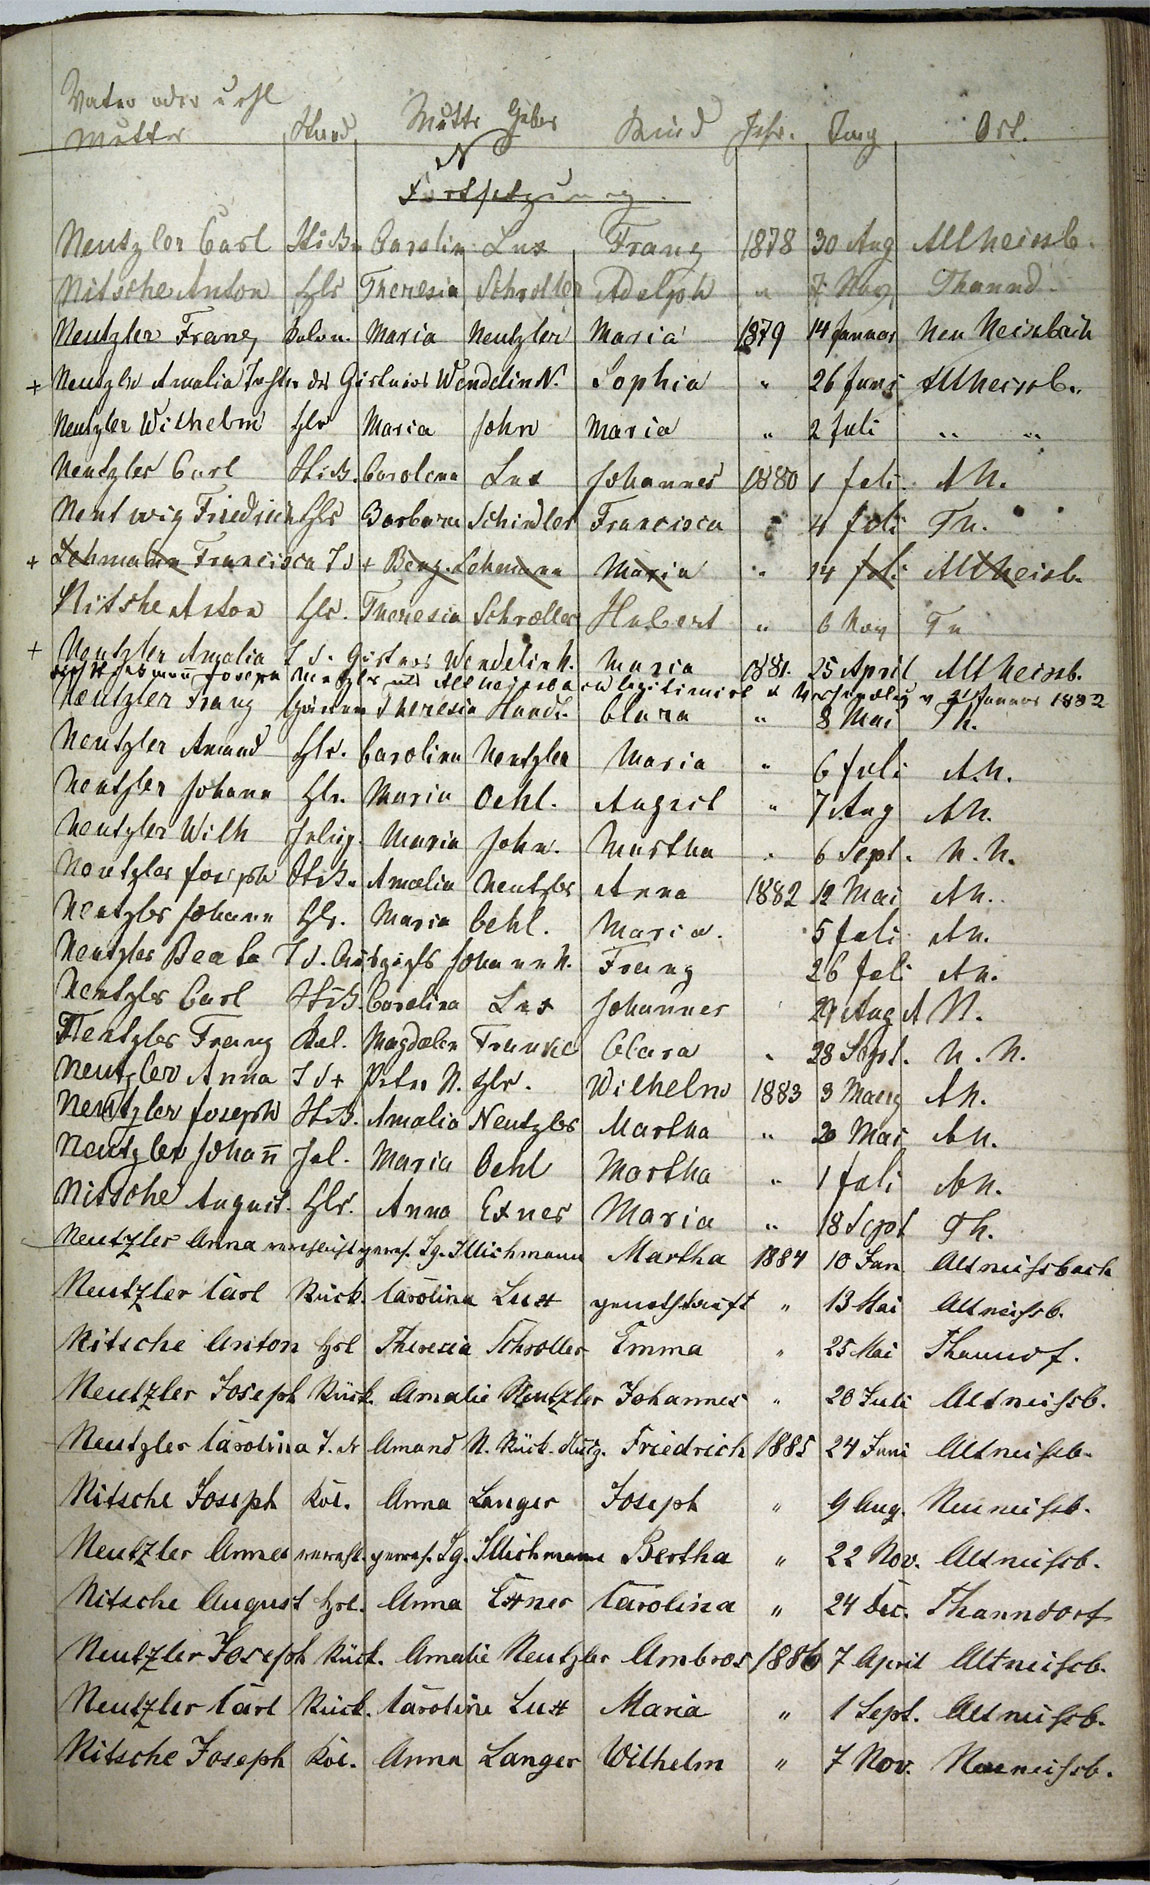 Vater oder
Mutter Stand Mutter Geber Kind Jahr. Tag Ort.
N
Fortsetzung
Neutzler Carl Stckb Carolin Lux Franz 1878 30 Aug Altneissb.
Nitsche Anton Hlr Theresia Schroller Adolph " 7 Nov Thannd.
Neutzler Franz Kolon. Maria Neutzler Maria 1879 14 Januar Neu Neisbach
+ Neutzler Amalia Tochter des Gärtners Wendelin N. Sophia " 26 Juni Altneissb.
Neutzler Wilhelm Hlr Maria John Maria " 2 Juli " "
Neutzler Carl StB. Carolina Lux Johannes 1880 1 Juli A N.
Nentwig Friedrich Hlr Barbara Schindler Francisca " 4 Juli Th.
+ Lehmann Francisca T d + Lehmann Maria " 14 Juli Altneisb.
Nitshe Anton Hlr. Theresia Schroller Hubert " 6 Nov Th
+ Neutzler Amalia T d. Gärtners Wendelin N. Maria 1881. 25 April Altneissb.
Joseph Neutzler Altneissba legitimirt 1882
Neutzler Franz Gärtner Theresia Clara " 8 Mai Th.
Neutzler Amand Hlr. Carolina Neutzler Maria " 6 Juli A.N.
Neutzler Johann Hlr. Maria Oehl. August " 7 Aug AN.
Neutzler Wilh Maria John. Martha " 6 Sept. N.N.
Neutzler Joseph StB. Amalia Neutzler Anna 1882 12 Mai AN.
Neutzler Johann Hlr. Maria Oehl. Maria. 5 Juli AN.
Neutzler Beata T d. Johann N. Franz 26 Juli AN.
Neutzler Carl StB. Carolina Lux Johannes 29 Aug A N.
Neutzler Franz Kol. Magdalen Franke Clara " 28 Sept. N.N.
Neutzler Anna T d + Peter N. Hlr. Wilhelm 1883 3 Maerz AN.
Neutzler Joseph StB. Amalia Neutzler Martha " 20 Mai AN.
Neutzler Johann̄ Maria Oehl Martha " 1 Juli AN.
Nitsche August. Hlr. Anna Exner Maria " 18 Sept Th.
Neutzler Anna Illichmann Martha 1884 10 Jan Altneissbach
Neutzler Carl Rück. Carolina Lux genothtauft " 13 Mai Altneissb.
Nitsche Anton Hsl Theresia Schroller Emma " 25 Mai Thanndf.
Neutzler Joseph Rück. Amalie Neutzler Johannes " 20 Juli Altneissb.
Neutzler Carolina T. d. Amand N. Rück. Friedrich 1885 24 Juni Altneissb.
Nitsche Joseph Kol. Anna Langer Joseph " 9 Aug. Neuneissb.
Neutzler Anna verehl. Illichmann Bertha " 22 Nov. Altneissb.
Nitsche August Hsl. Anna Exner Carolina " 24 Dec. Thanndorf
Neutzler Joseph Rück. Amalie Neutzler Ambros 1886 7 April Altneissb.
Neutzler Carl Rück. Caroline Lux Maria " 1 Sept. Altneissb.
Nitsche Joseph Kol. Anna Langer Wilhelm " 7 Nov. Neuneissb.